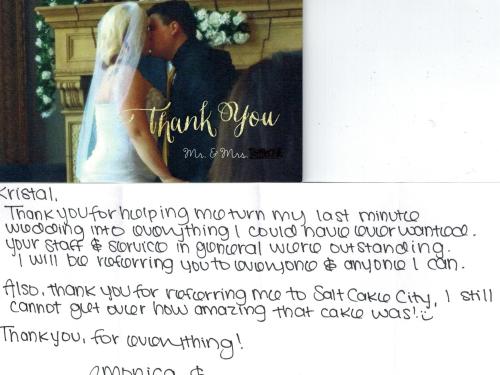 Thank You
Mr. & Mrs.
Kristal,
Thank you for helping me turn my last minute
wedding into everything I could have ever wanted.
your staff & service in general were outstanding.
I will be referring you to everyone & anyone I can.
Also, thank you for referring me to Salt Cake City, I still
cannot get over how amazing that cake was!
Thankyou, for everything!
Monica &